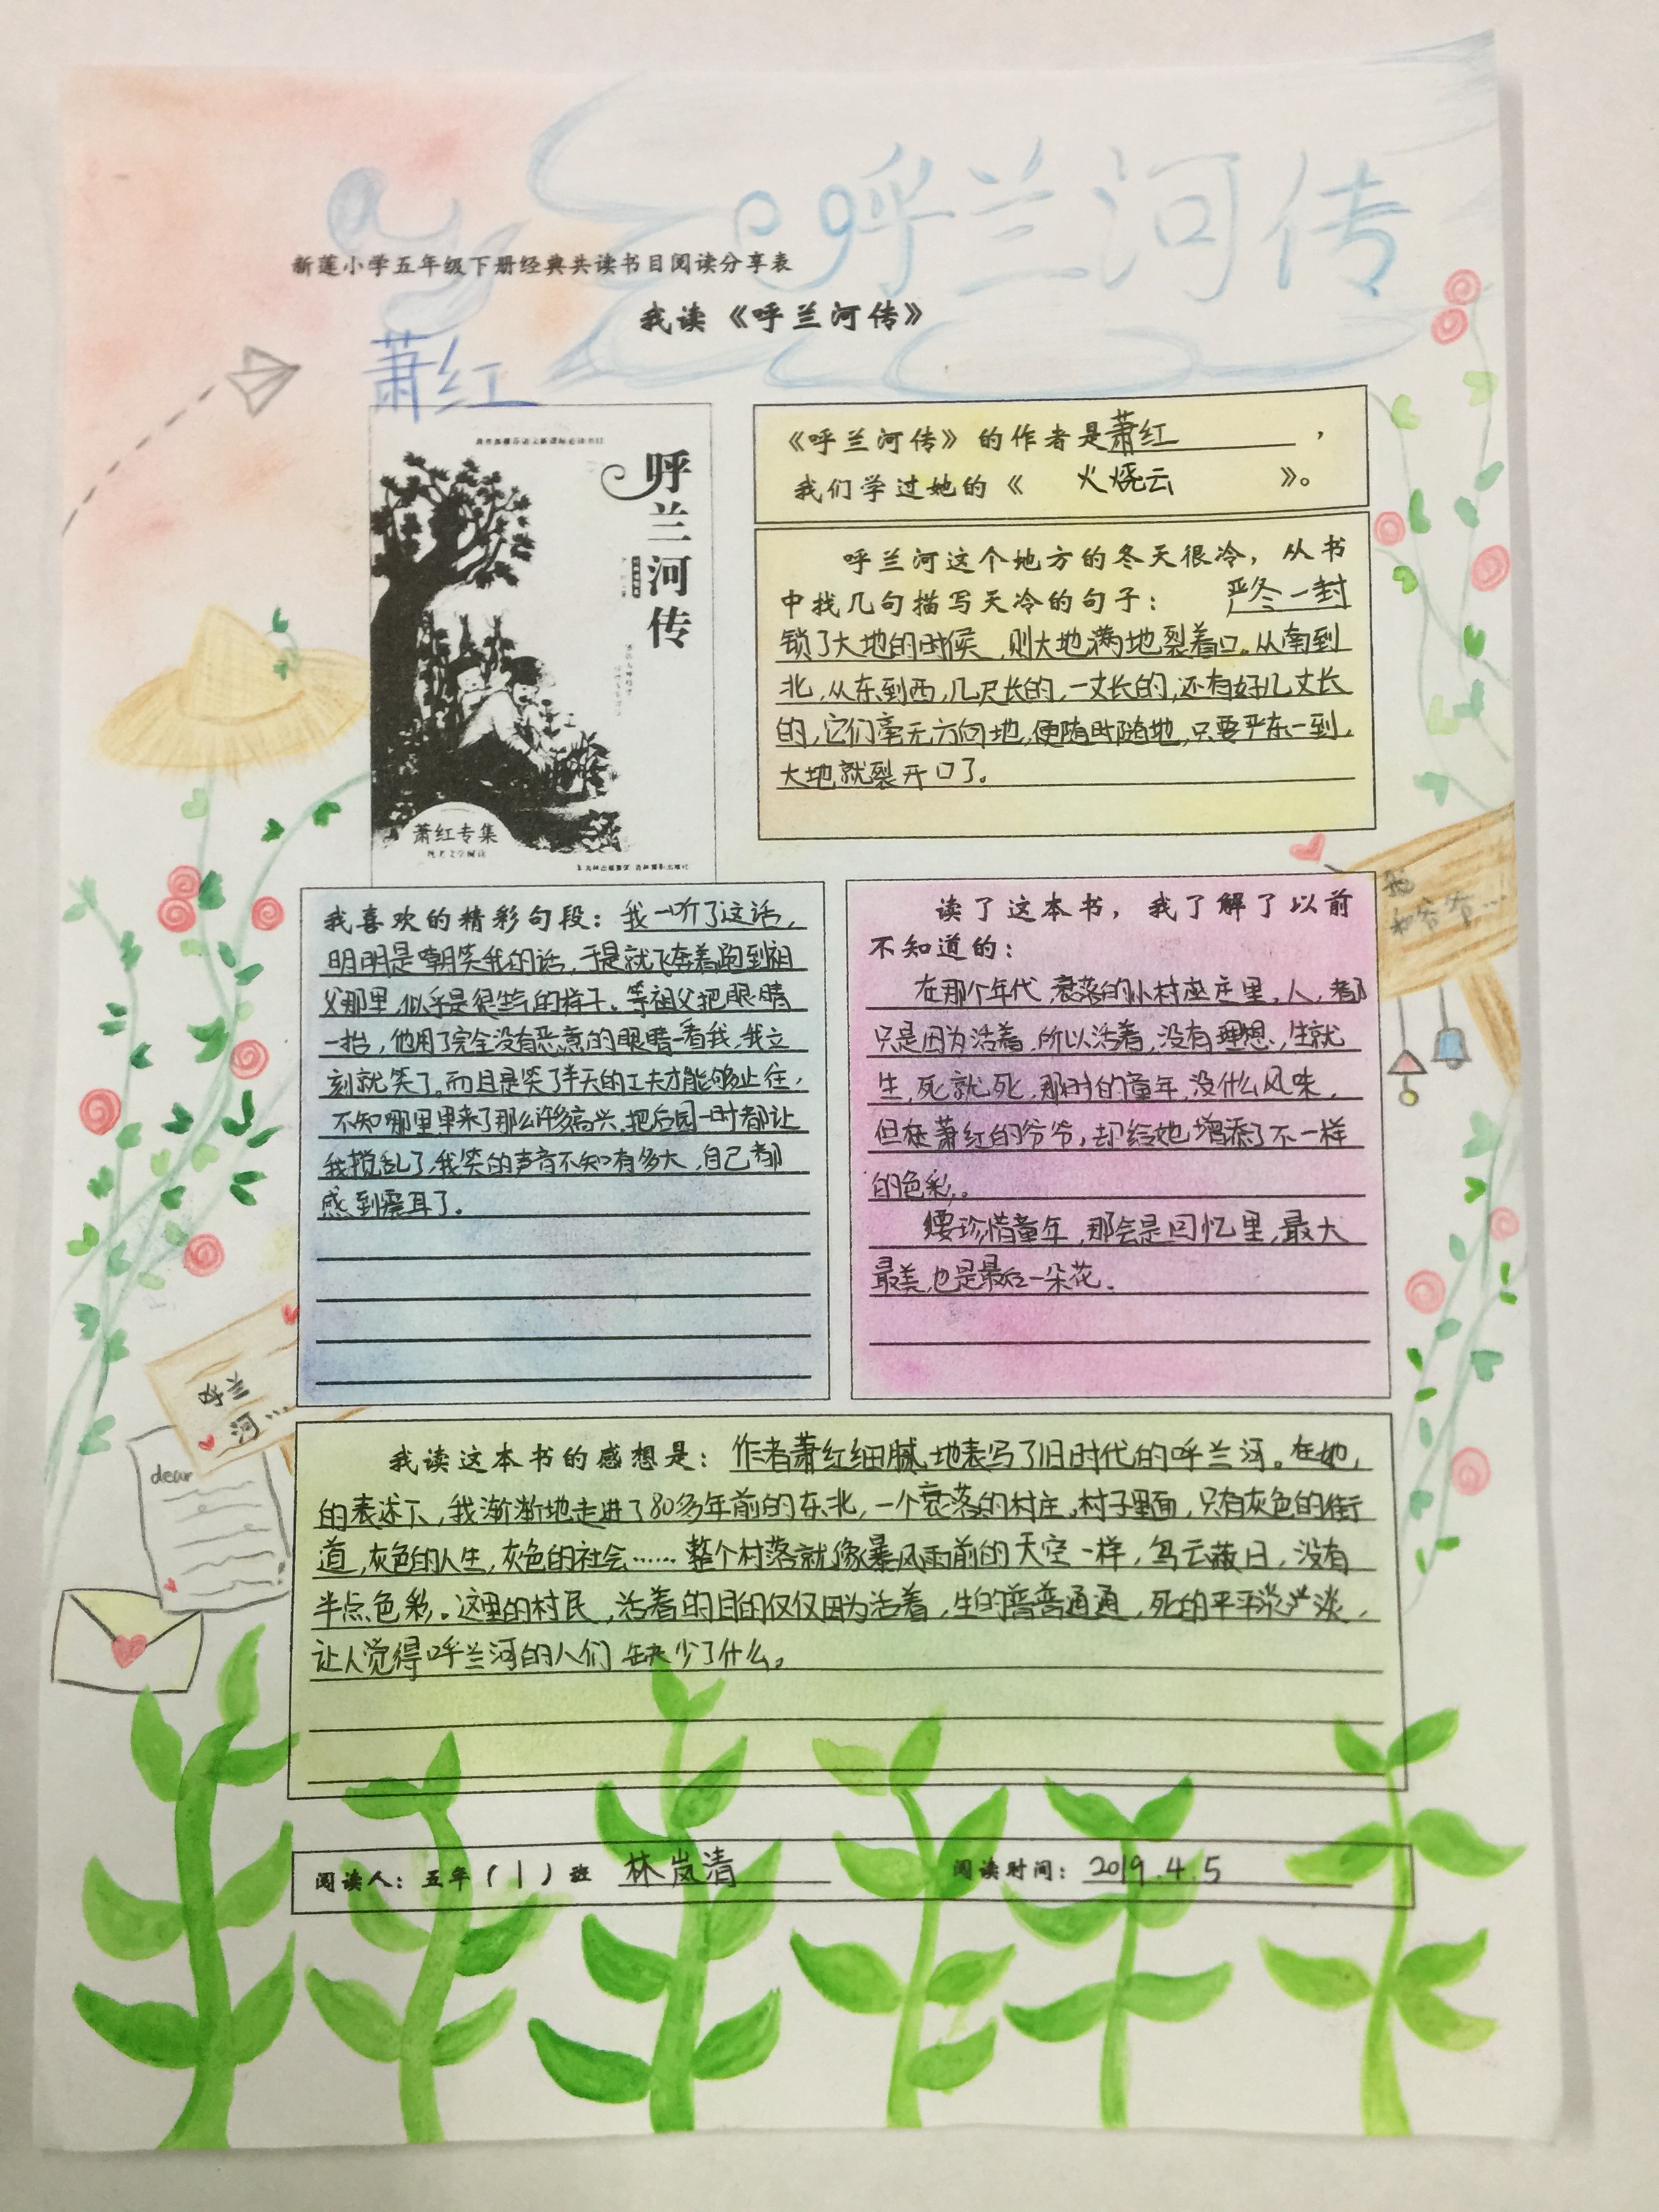 呼兰河传
新莲小学五年级下册经典共读书目阅读分享表
我读《呼兰河传》
萧红
呼兰河传
萧红专集
《呼兰河传》的作者是萧红，
我们学过她的《 火烧云 》。
呼兰河这个地方的冬天很冷，从书
中找几句描写天冷的句子： 严冬一封
锁了大地的时候，则大地满地裂着口。从南到
北，从东到西，几尺长的，一丈长的，还有好几丈长
的，它们毫无方向地，便随时随地，只要严东一到，
大地就裂开口了。
我喜欢的精彩句段：我一听了这话，
明明是嘲笑我的话，于是就飞奔着跑到祖
父那里，似乎是很生气的样子。等祖父把眼睛
一抬，他用了完全没有恶意的眼睛一看我，我立
刻就笑了。而且是笑了半天的工夫才能够止住，
不知哪里来了那么许多高兴，把后园一时都让
我搅乱了，我笑的声音不知有多大，自己都
感到震耳了。
读了这本书，我了解了以前
不知道的：
在那个年代，衰落的小村庄里，人，都
只是因为活着，所以活着，没有理想，生就
生，死就死，那时的童年，没什么风味，
但在萧红的爷爷，却给她增添了不一样
的色彩。
要珍惜童年，那会是回忆里，最大
最美，也是最后一朵花.
我读这本书的感想是：作者萧红细腻地表写了旧时代的呼兰河。在她，
的表述下，我渐渐地走进了80多年前的东北，一个衰落的村庄，村子里面，只有灰色的街
道，灰色的人生，灰色的社会……整个村落就像暴风雨前的天空一样，乌云蔽日，没有
半点色彩。这里的村民，活着的目的仅仅因为活着，生的普普通通，死的平平淡淡，
让人觉得呼兰河的人们 缺少了什么。
dear
阅读人：五年（1）班 林岚清 阅读时间：2019.4.5